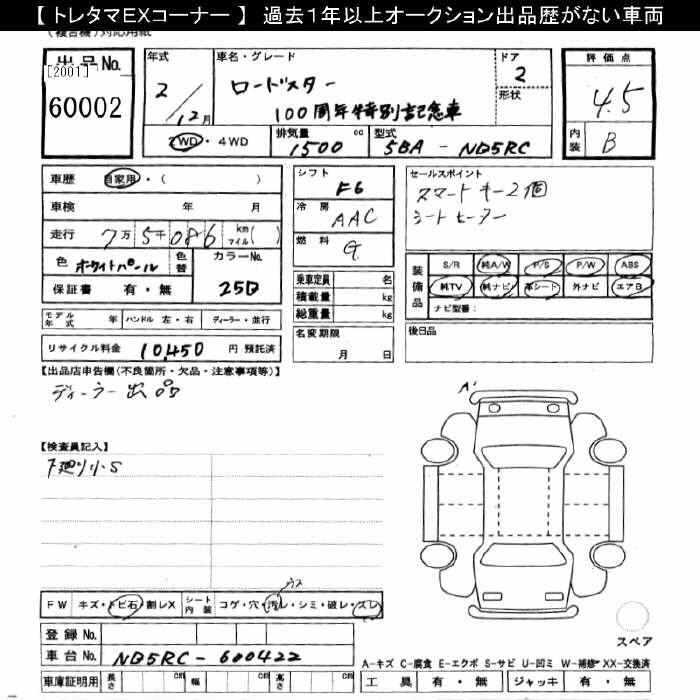 【 トレタマEXコーナー 】 過去１年以上オークション出品歴がない車両
(複合機) 対応用紙
出品No.
[2001]
60002
年式
2/12月
車名・グレード
ロードスター
100周年特別記念車
ドア
2
形状
評価点
4.5
内装
B
2WD・4WD
排気量 1500 cc
型式 5BA - ND5RC
車歴 自家用・( )
車検 年 月
走行 7万5千086 km マイル( )
色 ホワイトパール
色替
カラーNo. 25D
保証書 有・無
シフト F6
冷房 AAC
燃料 G
乗車定員 名
積載量 kg
総重量 kg
名変期限
月 日
セールスポイント
スマートキー2個
シートヒーター
装備品
S/R 純A/W P/S P/W ABS
純TV 純ナビ 革シート 外ナビ エアB
ナビ型番：
後日品
モデル年式 年 ハンドル 左・右 ディーラー・並行
リサイクル料金 10,450 円 預託済
【出品店申告欄(不良箇所・欠品・注意事項等)】
ディーラー出品
【検査員記入】
下廻り小S
A'
FW キズ・トビ石・割レX
シート内装 コゲ・穴・汚レ・シミ・破レ・スレ
ウス
登録No.
車台No. ND5RC-600422
車庫証明用 長さ cm 幅 cm 高さ cm
スペア
A-キズ C-腐食 E-エクボ S-サビ U-凹ミ W-補修 XX-交換済
工具 有・無 ジャッキ 有・無